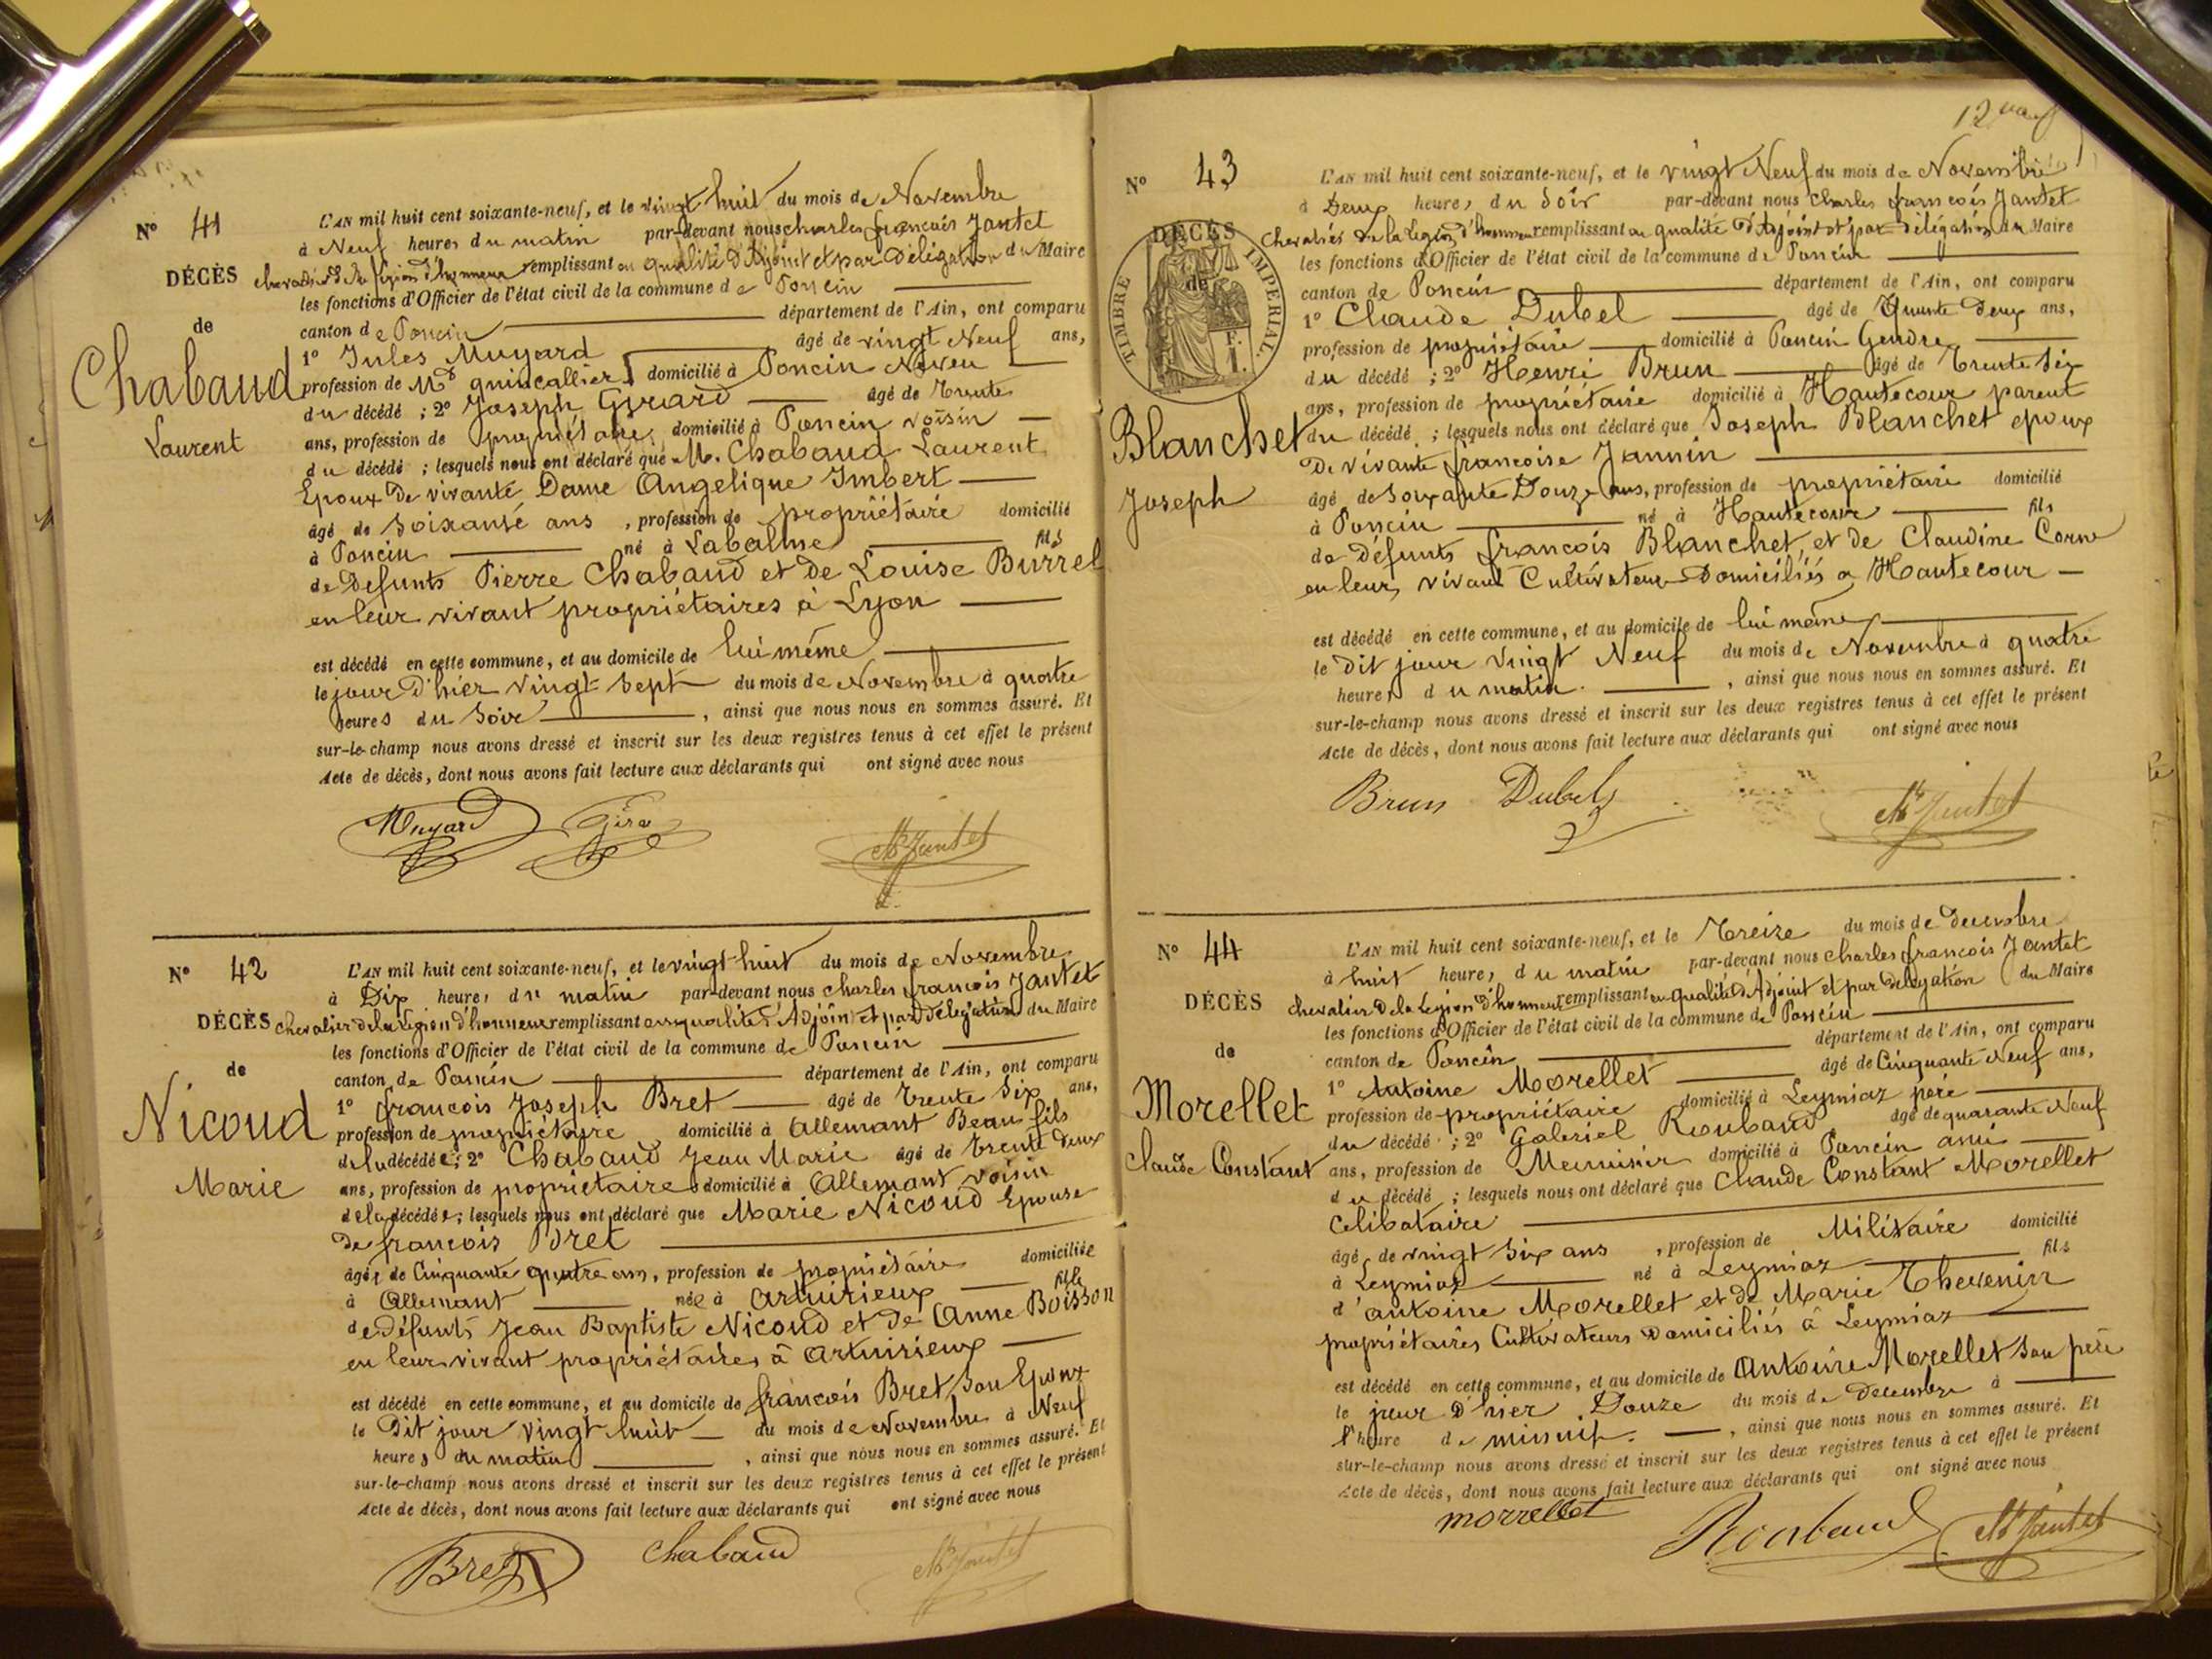 N° 41
DÉCÈS
de
Chabaud
Laurent
L'AN mil huit cent soixante-neuf, et le vingt huit du mois de Novembre
à Neuf heures du matin par-devant nous charles françois Jantet
chevalier de la légion d'honneur remplissant en qualité d'Adjoint et par Délégation du Maire
les fonctions d'Officier de l'état civil de la commune de Poncin
canton de Poncin département de l'Ain, ont comparu
1° Jules Muyard âgé de vingt Neuf ans,
profession de Md quincallier domicilié à Poncin Neveu
du décédé ; 2° Joseph Girard âgé de Trente
ans, profession de propriétaire domicilié à Poncin voisin
du décédé ; lesquels nous ont déclaré que M. Chabaud Laurent
Epoux de vivante Dame Angelique Imbert
âgé de soixante ans , profession de propriétaire domicilié
à Poncin né à Labalme fils
de Defunts Pierre Chabaud et de Louise Burrel
en leur vivant propriétaires à Lyon
est décédé en cette commune, et au domicile de lui même
le jour d'hier vingt sept du mois de Novembre à quatre
heures du Soir , ainsi que nous nous en sommes assuré. Et
sur-le-champ nous avons dressé et inscrit sur les deux registres tenus à cet effet le présent
Acte de décès, dont nous avons fait lecture aux déclarants qui ont signé avec nous
Muyard Jantet
N° 42
DÉCÈS
de
Nicoud
Marie
L'AN mil huit cent soixante-neuf, et le vingt huit du mois de Novembre
à Dix heures du matin par-devant nous charles françois Jantet
chevalier de la Légion d'honneur remplissant en qualité d'Adjoint et par Délégation du Maire
les fonctions d'Officier de l'état civil de la commune de Poncin
canton de Poncin département de l'Ain, ont comparu
1° françois Joseph Bret âgé de Trente Six ans,
profession de propriétaire domicilié à Allemant Beau fils
de la décédée ; 2° Chabaud Jean Marie âgé de Trente deux
ans, profession de propriétaire domicilié à Allemant voisin
de la décédée ; lesquels nous ont déclaré que Marie Nicoud Epouse
de françois Bret
âgée de Cinquante quatre ans, profession de propriétaire domiciliée
à Allemant née à Artuirieux fille
de Défunts Jean Baptiste Nicoud et de Anne Boisson
en leur vivant propriétaires à Artuirieux
est décédé en cette commune, et au domicile de françois Bret Son Epoux
le Dit jour vingt huit du mois de Novembre à Neuf
heures du matin , ainsi que nous nous en sommes assuré. Et
sur-le-champ nous avons dressé et inscrit sur les deux registres tenus à cet effet le présent
Acte de décès, dont nous avons fait lecture aux déclarants qui ont signé avec nous
Bret Chabaud Jantet
N° 43
DÉCÈS
de
TIMBRE IMPÉRIAL.
Blanchet
Joseph
L'AN mil huit cent soixante-neuf, et le vingt Neuf du mois de Novembre
à Deux heures du Soir par-devant nous Charles françois Jantet
Chevalier de la Légion d'honneur remplissant en qualité d'Adjoint et par délégation du Maire
les fonctions d'Officier de l'état civil de la commune de Poncin
canton de Poncin département de l'Ain, ont comparu
1° Claude Dubel âgé de deux ans,
profession de propriétaire domicilié à Poncin Gendre
du décédé ; 2° Henri Brun âgé de Trente Six
ans, profession de propriétaire domicilié à Hautecour parent
du décédé ; lesquels nous ont déclaré que Joseph Blanchet epoux
De vivante françoise Jannin
âgé de Soixante Douze ans, profession de propriétaire domicilié
à Poncin né à Hautecour fils
de défunts françois Blanchet, et de Claudine Corne
en leur vivant Cultivateurs Domiciliés à Hautecour
est décédé en cette commune, et au domicile de lui même
le dit jour vingt Neuf du mois de Novembre à quatre
heures du matin. , ainsi que nous nous en sommes assuré. Et
sur-le-champ nous avons dressé et inscrit sur les deux registres tenus à cet effet le présent
Acte de décès, dont nous avons fait lecture aux déclarants qui ont signé avec nous
Brun Dubel Jantet
N° 44
DÉCÈS
de
Morellet
Claude Constant
L'AN mil huit cent soixante-neuf, et le Treize du mois de decembre
à huit heures du matin par-devant nous charles françois Jantet
chevalier de la Légion d'honneur remplissant en qualité d'Adjoint et par délégation du Maire
les fonctions d'Officier de l'état civil de la commune de Poncin
canton de Poncin département de l'Ain, ont comparu
1° Antoine Morellet âgé de Cinquante Neuf ans,
profession de propriétaire domicilié à Leymiaz père
du décédé ; 2° Gabriel Roubaud âgé de quarante Neuf
ans, profession de Menuisier domicilié à Poncin ami
du décédé ; lesquels nous ont déclaré que Claude Constant Morellet
Celibataire
âgé de vingt Six ans , profession de Militaire domicilié
à Leymiaz né à Leymiaz fils
d'antoine Morellet et de Marie Thevenin
propriétaires Cultivateurs domiciliés à Leymiaz
est décédé en cette commune, et au domicile de Antoine Morellet Son père
le jour d'hier Douze du mois de decembre à
l'heure de minuit. , ainsi que nous nous en sommes assuré. Et
sur-le-champ nous avons dressé et inscrit sur les deux registres tenus à cet effet le présent
Acte de décès, dont nous avons fait lecture aux déclarants qui ont signé avec nous
morrellet Roubaud Jantet